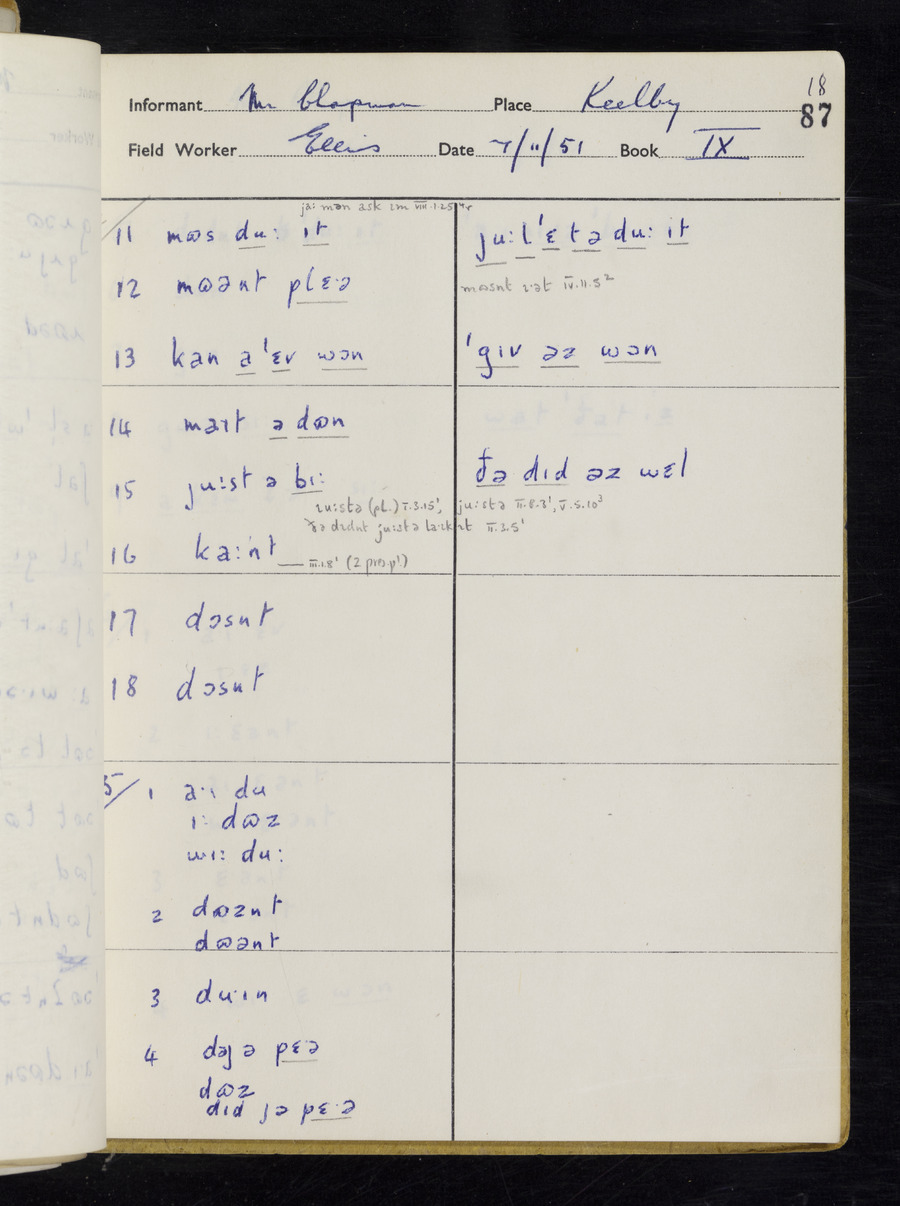 18
Informant Mr Chapman Place Keelby 87
Field Worker Ellis Date 7/11/51 Book IX
ja: mən ask ɪm VIII.1.25
11 mʊs du: ɪt ju:l 'ɛ tə du: ɪt
12 mʊənt plɛ·ə mʊsnt IV.11.5²
13 kan a 'ɛv wɔn 'gɪv əz wɔn
14 maɪt ə dʊn
15 ju:st ə bi: ðə dɪd əz wɛl
ju:stə (pl.) I.3.15¹, ju:stə II.8.3¹, V.5.10³
ðə dɪdnt ju:stə la:ɪk ɪt II.3.5¹
16 ka:nt — III.1.8¹ (2 pres.pl)
17 dɔsnt
18 dɔsnt
5/ 1 a·ɪ du
ɪ: dʊz
wɪ: du:
2 dʊznt
dʊənt
3 du·ɪn
4 dəj ə pɛ·ə
dʊz
dɪd jə pɛ·ə